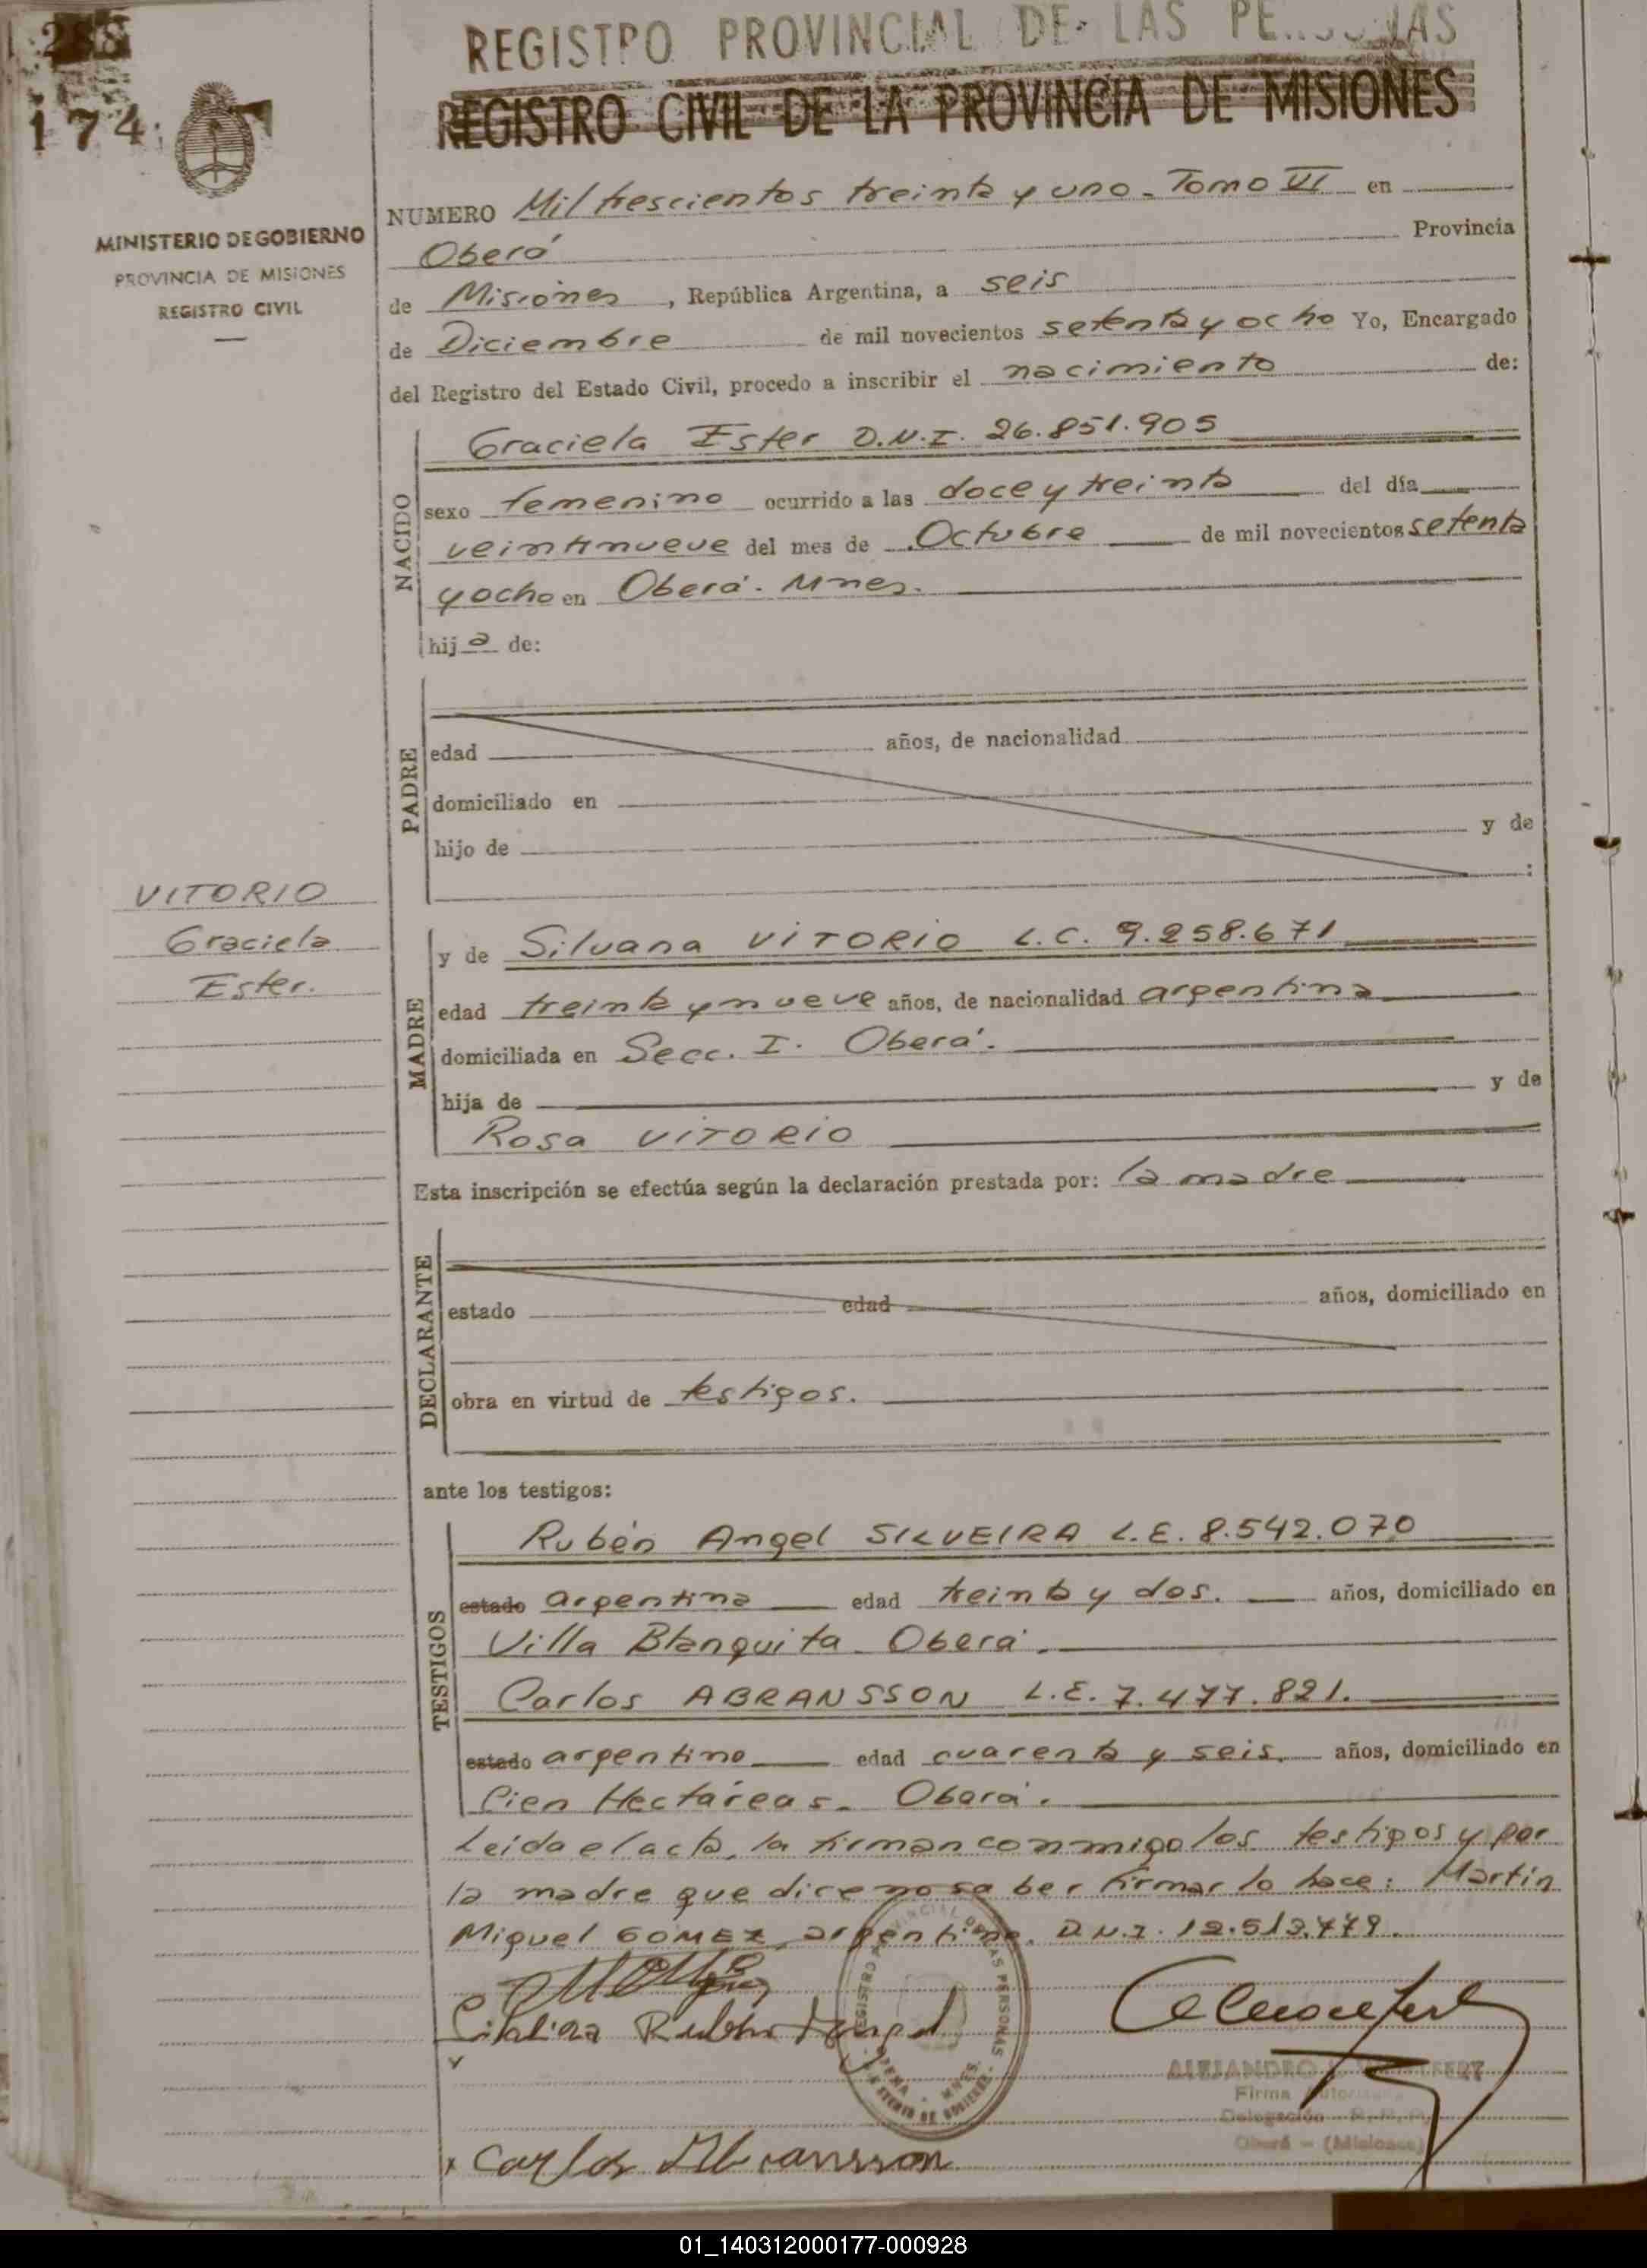 288
174
MINISTERIO DE GOBIERNO
PROVINCIA DE MISIONES
REGISTRO CIVIL
REGISTRO PROVINCIAL DE LAS PERSONAS
REGISTRO CIVIL DE LA PROVINCIA DE MISIONES
NUMERO Mil trescientos treinta y uno - Tomo VI en
Oberá Provincia
de Misiones, República Argentina, a seis
de Diciembre de mil novecientos setenta y ocho Yo, Encargado
del Registro del Estado Civil, procedo a inscribir el nacimiento de:
NACIDO
Graciela Ester D.N.I. 26.851.905
sexo femenino ocurrido a las doce y treinta del día
veintinueve del mes de Octubre de mil novecientos setenta
y ocho en Oberá. Mnes.
hija de:
PADRE
edad años, de nacionalidad
domiciliado en
hijo de y de
:
VITORIO
Graciela
Ester.
MADRE
y de Silvana VITORIO L.C. 9.258.671
edad treinta y nueve años, de nacionalidad argentina
domiciliada en Secc. I. Oberá.
hija de y de
Rosa VITORIO
Esta inscripción se efectúa según la declaración prestada por: la madre
DECLARANTE
estado edad años, domiciliado en
obra en virtud de testigos.
ante los testigos:
TESTIGOS
Rubén Angel SILVEIRA L.E. 8.542.070
estado argentina edad treinta y dos. años, domiciliado en
Villa Blanquita Oberá.
Carlos ABRANSSON L.E. 7.477.821.
estado argentino edad cuarenta y seis. años, domiciliado en
Cien Hectáreas - Oberá.
Leída el acta, la firman conmigo los testigos y por
la madre que dice no saber firmar lo hace: Martín
Miguel GOMEZ, argentino, D.N.I. 12.513.479.
REGISTRO PROVINCIAL DE LAS PERSONAS
Rubén Angel
ALEJANDRO
Firma Autorizada
Delegación R.P.P.
Oberá - (Misiones)
Carlos Abransson
01_140312000177-000928